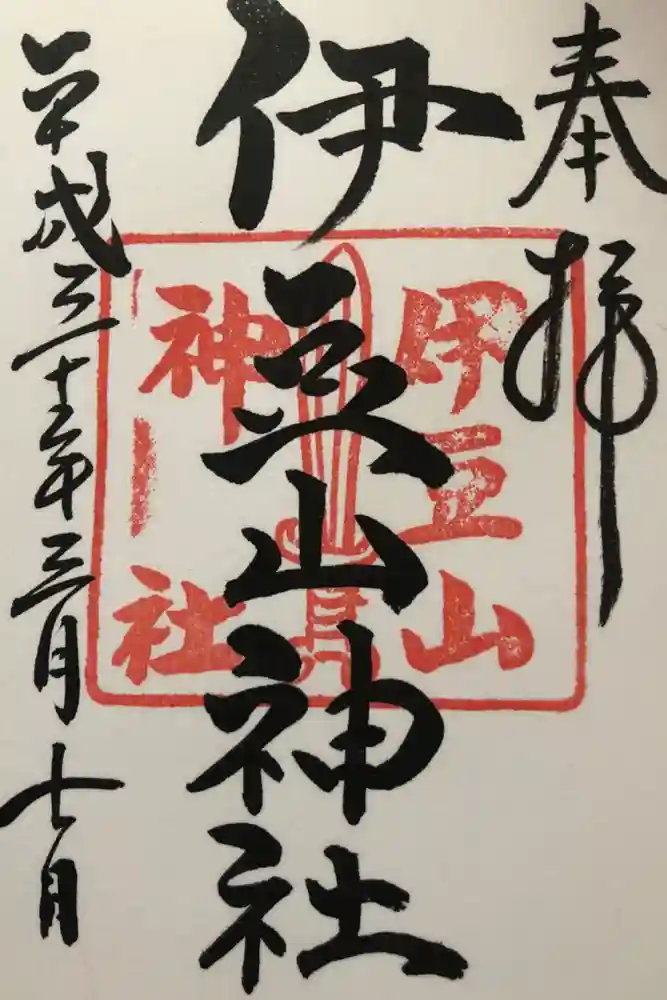 奉拝
伊豆山神社
平成三十年三月七日
伊豆山
神社